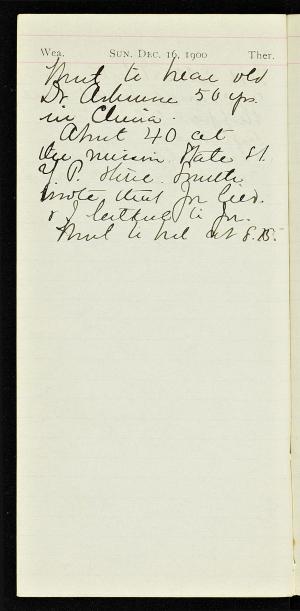 Wea. SUN. DEC. 16, 1900 Ther.
Went to hear old
Dr. Ashmore 50 yrs.
in China.
About 40 at
the mission. State St.
Y. P. Smith
wrote that Jn lied.
& I to Jn.
Went to bed at 8.15.